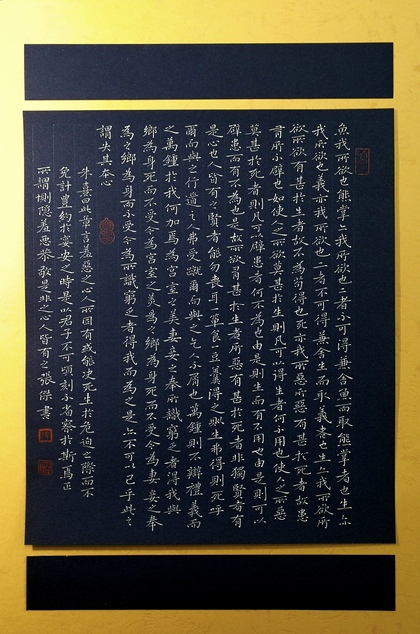 魚我所欲也熊掌亦我所欲也二者不可得兼舍魚而取熊掌者也生亦
我所欲也義亦我所欲也二者不可得兼舍生而取義者也生亦我所欲所
欲所欲有甚於生者故不為苟得也死亦我所惡所惡有甚於死者故患
有所不辟也如使人之所欲莫甚於生則凡可以得生者何不用也使人之所惡
莫甚於死者則凡可以辟患者何不為也由是則生而有不用也由是則可以
辟患而有不為也是故所欲有甚於生者所惡有甚於死者非獨賢者有
是心也人皆有之賢者能勿喪耳一簞食一豆羹得之則生弗得則死呼
爾而與之行道之人弗受蹴爾而與之乞人不屑也萬鍾則不辯禮義而
之萬鍾於我何加焉為宮室之美妻妾之奉所識窮乏者得我與
鄉為身死而不受今為宮室之美為之鄉為身死而不受今為妻妾之奉
為之鄉為身死而不受今為所識窮乏者得我而為之是亦不可以已乎此之
謂失其本心
朱熹曰此章言羞惡之心人所固有或能決死生於危迫之際而不
免計豐約於宴安之時是以君子不可頃刻而不省察於斯焉正
所謂惻隱羞惡恭敬是非之心人皆有之張傑書